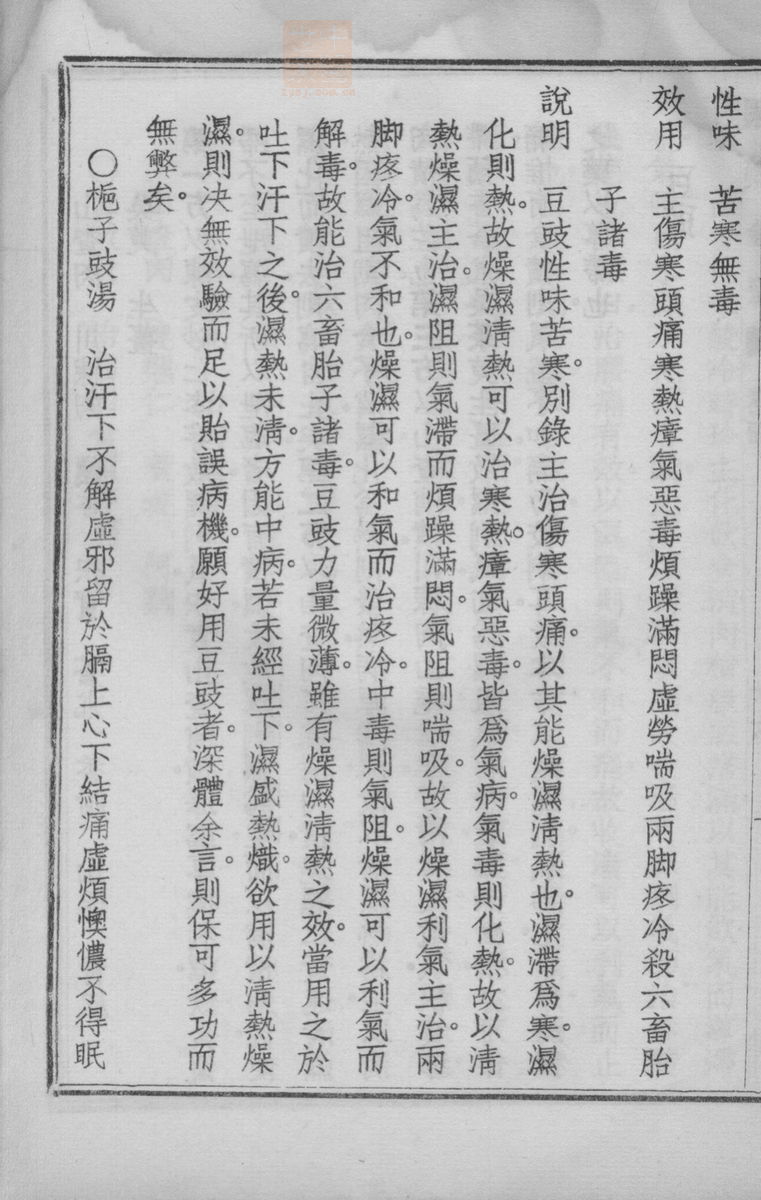 性味　苦寒無毒
效用　主傷寒頭痛寒熱瘴氣惡毒煩躁滿悶虛勞喘吸兩脚疼冷殺六畜胎
子諸毒
說明　豆豉性味苦寒。別錄主治傷寒頭痛。以其能燥濕淸熱也。濕滯爲寒。濕
化則熱。故燥濕淸熱可以治寒熱。瘴氣惡毒。皆爲氣病。氣毒則化熱。故以淸
熱燥濕主治。濕阻則氣滯而煩躁滿悶。氣阻則喘吸。故以燥濕利氣主治。兩
脚疼冷。氣不和也。燥濕可以和氣而治疼冷。中毒則氣阻。燥濕可以利氣而
解毒。故能治六畜胎子諸毒。豆豉力量微薄。雖有燥濕淸熱之效。當用之於
吐下汗下之後。濕熱未淸。方能中病。若未經吐下。濕盛熱熾。欲用以淸熱燥
濕。則决無效驗而足以貽誤病機。願好用豆豉者。深體余言。則保可多功而
無弊矣。
○梔子豉湯　治汗下不解虛邪留於膈上心下結痛虛煩懊憹不得眠
zysj.com.cn